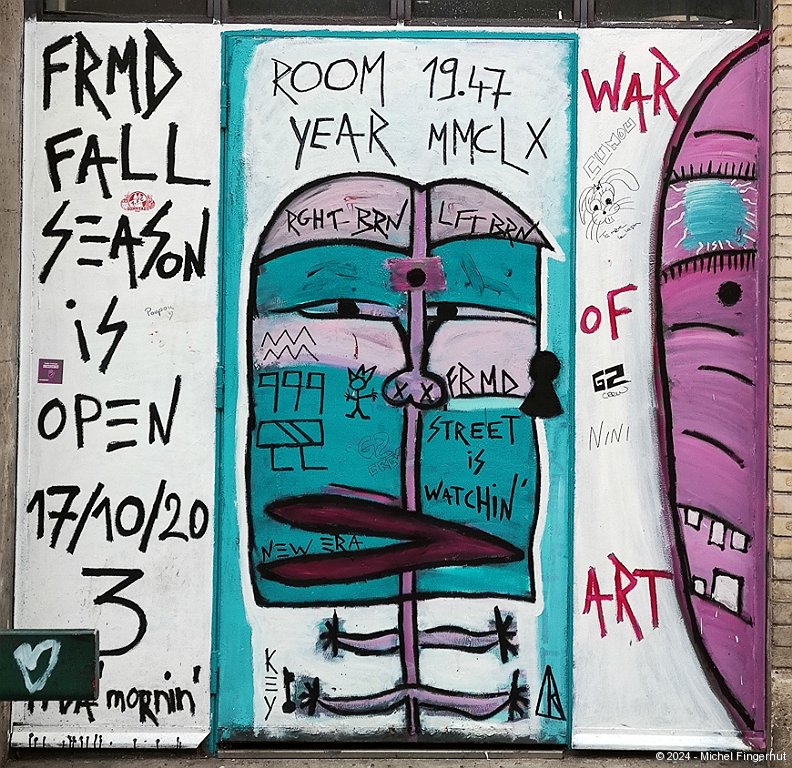 FRMD
FALL
SEASON
iS
OPEN
17/10/20
3
mornin'
ROOM 19.47
YEAR MMCLX
RGHT-BRN
LFT BRN
999
FRMD
STREET
iS
WATCHIN'
NEW ERA
KEY
WAR
OF
ART
GZ
CREW
NiNi
© 2024 - Michel Fingerhut